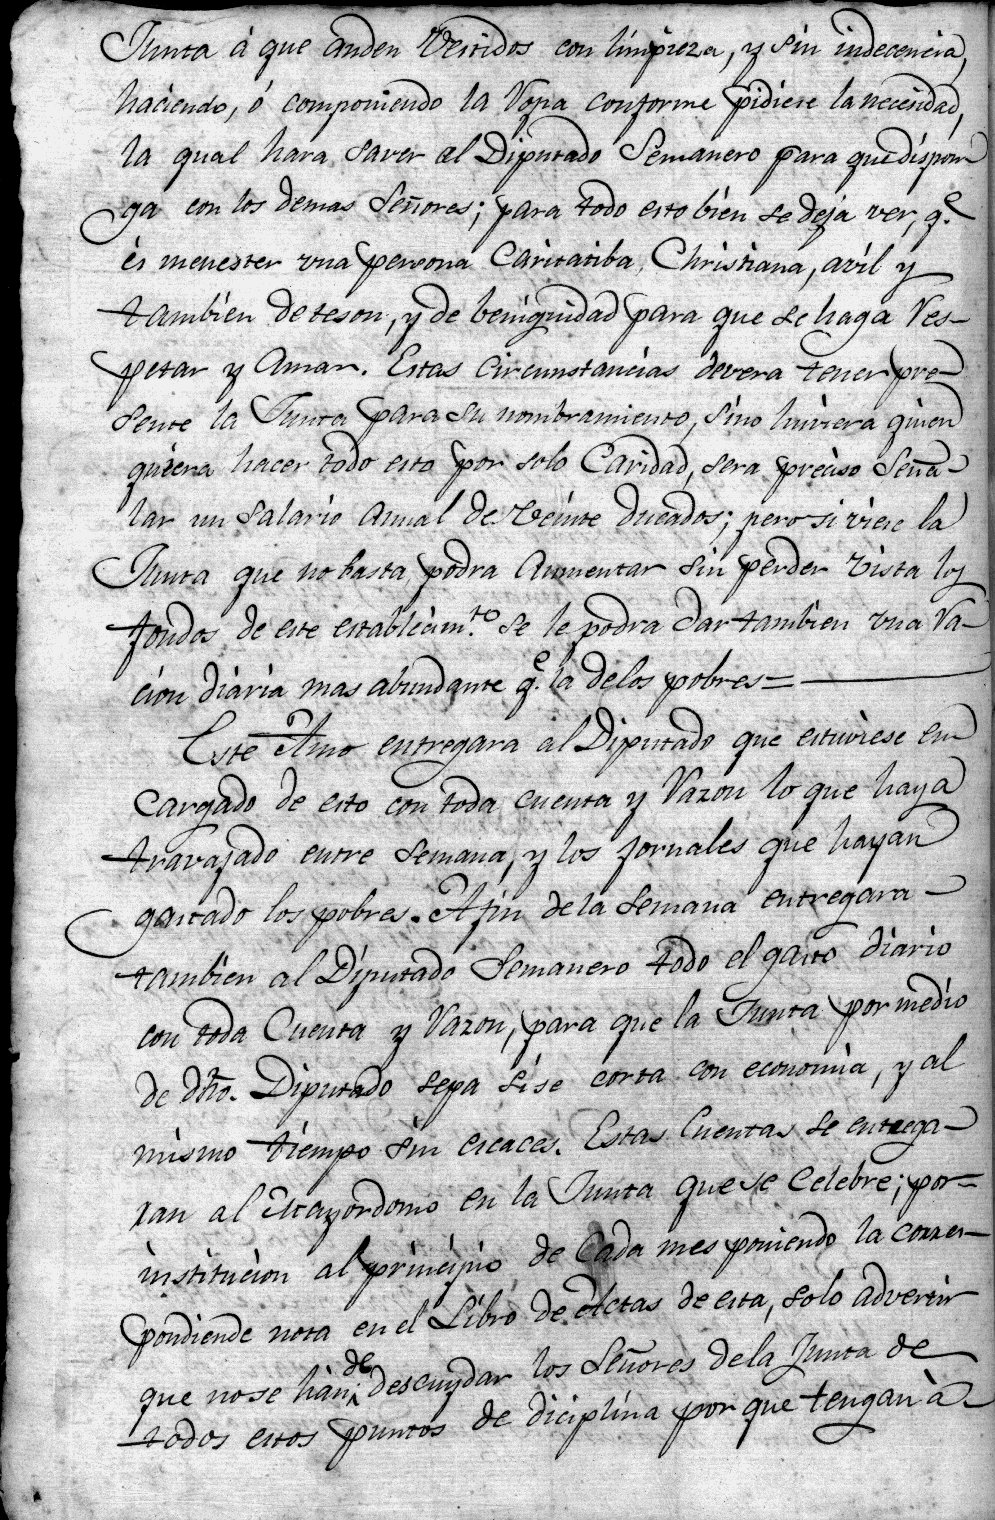 Junta á que anden Vestidos con limpieza, y sin indecencia,
haciendo, ó componiendo la Ropa conforme pidiese la necesidad,
la qual hara saver al Diputado Semanero para que dispon
ga con los demas Señores; para todo esto bien se deja ver, q.e
és menester una persona Caritatiba, Christiana, avil y
tambien de teson, y de benignidad para que se haga Res-
petar y Amar. Estas circunstancias devera tener pre-
sente la Junta para su nombramiento, sino huviera quien
quiera hacer todo esto por solo Caridad, sera preciso Seña-
lar un salario Anual de Veinte ducados; pero si viere la
Junta que no basta podra Aumentar sin perder vista los
fondos de este establecim.to se le podra dar tambien una Ra-
cion diaria mas abundante q.e la de los pobres=
Este Amo entregara al Diputado que estuviese en
cargado de esto con toda cuenta y Razon lo que haya
travajado entre semana, y los jornales que hayan
gastado los pobres. A fin de la semana entregara
tambien al Diputado Semanero todo el gasto diario
con toda Cuenta y Razon, para que la Junta por medio
de dho. Diputado sepa si se corta con economia, y al
mismo tiempo sin escaces. Estas Cuentas se entrega-
ran al Mayordomo en la Junta que se Celebre; por=
institucion al principio de Cada mes poniendo la corres-
pondiende nota en el Libro de Actas de esta, solo advertir
que no se hàn de descuydar los Señores de la Junta de
todos estos puntos de diciplina por que tengan à